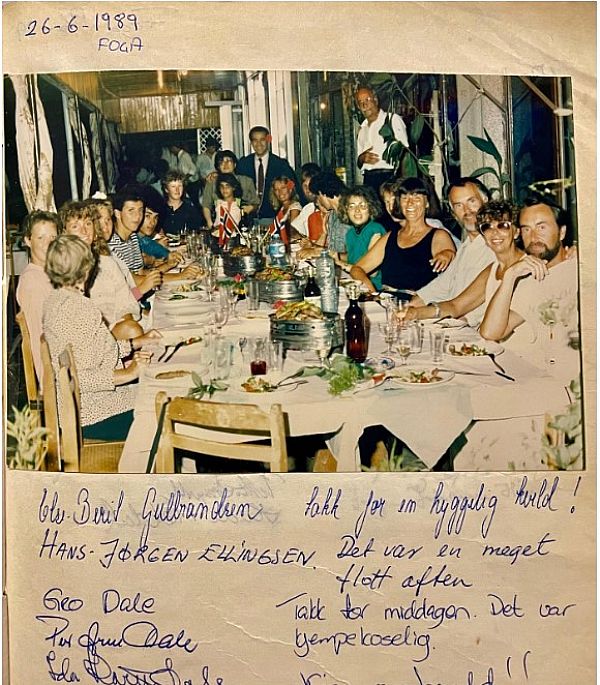 26-6-1989
FOGA
Berit Gulbrandsen takk for en hyggelig kveld!
HANS-JØRGEN ELLINGSEN. Det var en meget
flott aften
Geo Dale Takk for middagen. Det var
Per Dale kjempekoselig.
Ida